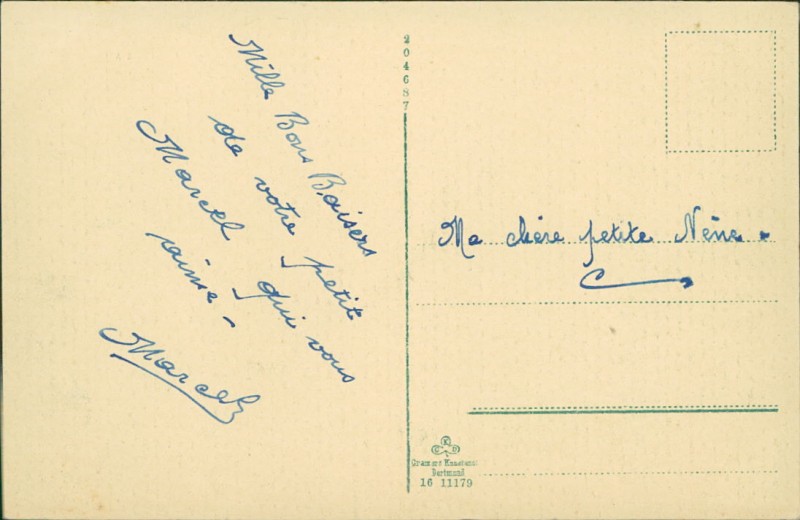 Mille Bons Baisers
de votre petit
Marcel qui vous
aime -
Marcel
204687
Ma chère petite Nène -
Cramers Kunstanst.
Dortmund
16 11179